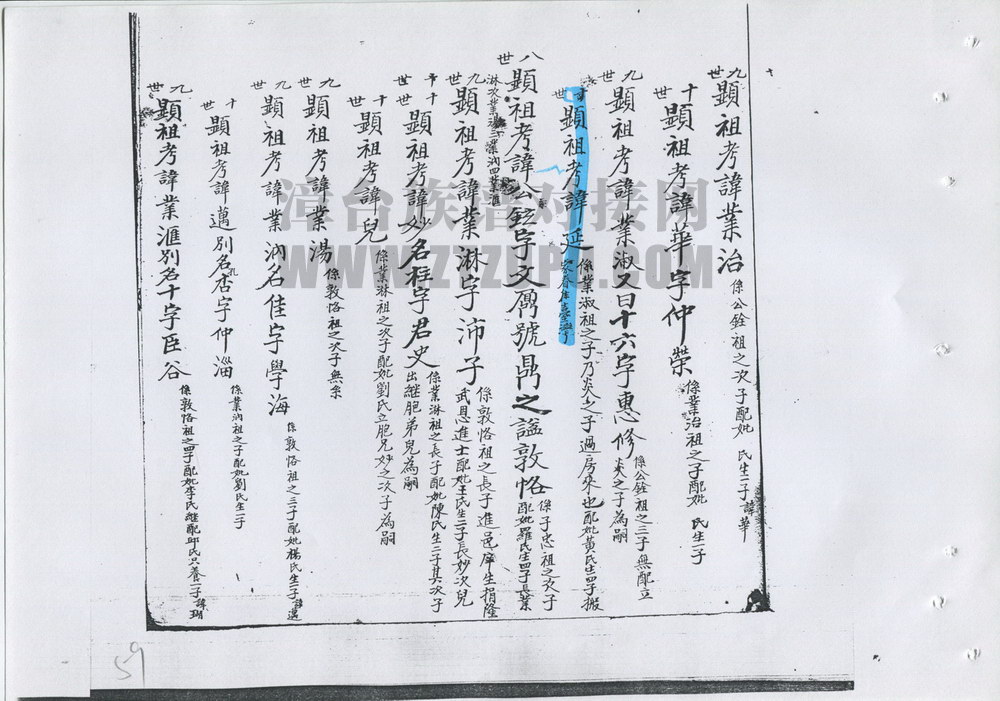 九世
顯祖考諱業治
係公銓祖之次子配妣 氏生一子諱華
十世
顯祖考諱華字仲榮
係業治祖之子配妣 氏生一子
九世
顯祖考諱業淑又曰十六字惠修
係公銓祖之三子無配立
炎之子為嗣
十世
顯祖考諱延
係業淑祖之子乃炎之子過房來也配妣黃氏生四子搬
家眷在臺灣
八世
顯祖考諱公鉉字文勇號鼎之謚敦恪
係子忠祖之次子
配妣羅氏生四子長業
淋次業 三業泑四業滙
九世
顯祖考諱業淋字沛子
係敦恪祖之長子進邑庠生捐隆
武恩進士配妣王氏生二子長妙次兒
十世
顯祖考諱妙名枉字君史
係業淋祖之長子配妣陳氏生二子其次子
出繼胞弟兒為嗣
十世
顯祖考諱兒
係業淋祖之次子配妣劉氏立胞兄妙之次子為嗣
九世
顯祖考諱業湯
係敦恪祖之次子無
九世
顯祖考諱業泑名佳字學海
係敦恪祖之三子配妣楊氏生一子諱邁
十世
顯祖考諱邁別名杏字仲淄
係業泑祖之子配妣劉氏生一子
九世
顯祖考諱業滙別名十字臣谷
係敦恪祖之四子配妣李氏繼配邱氏只養一子諱瑚
漳台族谱对接网
WWW.ZTZLP.COM
59